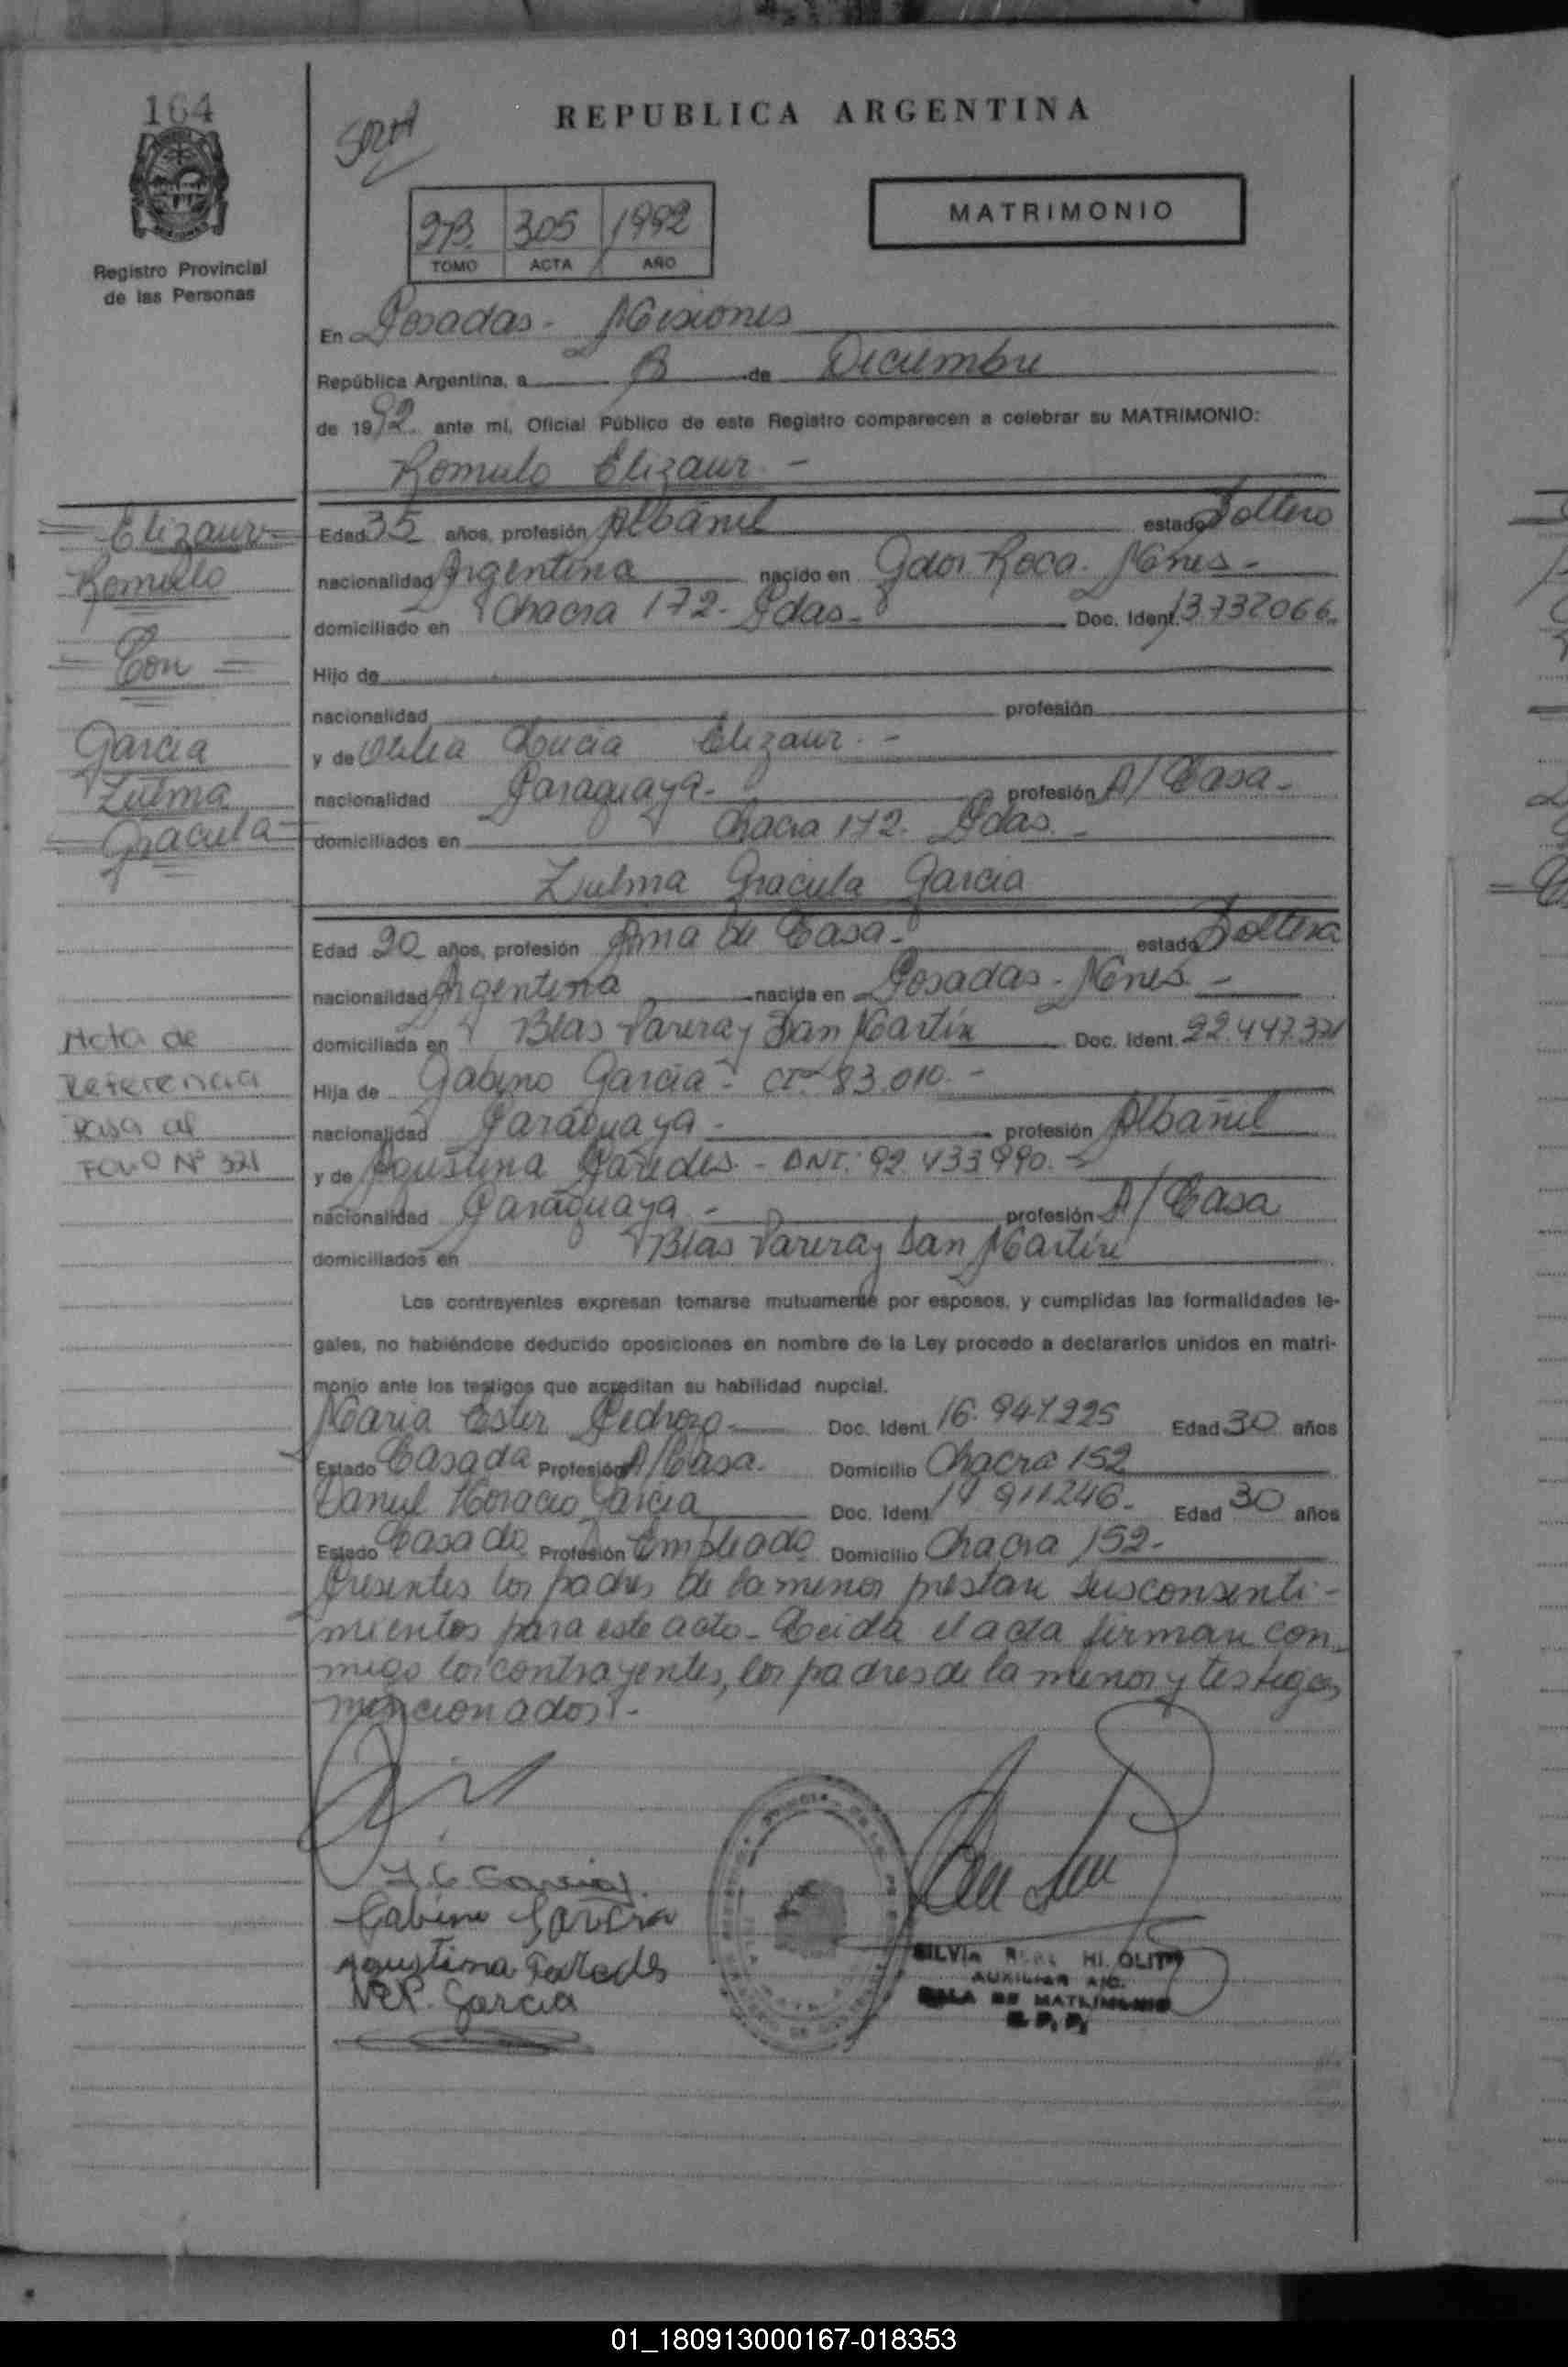 164
REPUBLICA ARGENTINA
MATRIMONIO
2B 305 1992
TOMO ACTA AÑO
Registro Provincial
de las Personas
En Posadas - Misiones
República Argentina, a de Diciembre
de 1992 ante mi, Oficial Público de este Registro comparecen a celebrar su MATRIMONIO:
Romulo Elizaur -
Elizaur
Romulo
Con
Garcia
Zulma
Graciela
Edad 35 años, profesión Albañil estado Soltero
nacionalidad Argentina nacido en Gdor Roca. Mnes -
domiciliado en Chacra 172 - Pdas - Doc. Ident. 13.732066.
Hijo de
nacionalidad profesión
y de Lucia Elizaur. -
nacionalidad Paraguaya - profesión A/ Casa -
domiciliados en Chacra 172. Pdas. -
Zulma Graciela Garcia
Edad 20 años, profesión Ama de Casa - estado Soltera
nacionalidad Argentina nacida en Posadas - Mnes -
domiciliada en Blas Parera y San Martin Doc. Ident. 22.447.321
Hija de Gabino Garcia - 83.010. -
nacionalidad Paraguaya - profesión Albañil
y de Agustina Paredes - DNI: 92.433990. -
nacionalidad Paraguaya - profesión A/ Casa
domiciliados en Blas Parera y San Martin
Nota de
Referencia
Pasa al
Folio Nº 321
Los contrayentes expresan tomarse mutuamente por esposos, y cumplidas las formalidades le-
gales, no habiéndose deducido oposiciones en nombre de la Ley procedo a declararlos unidos en matri-
monio ante los testigos que acreditan su habilidad nupcial.
Maria Ester Pedrozo Doc. Ident. 16.947.225 Edad 30 años
Estado Casada Profesión A/Casa. Domicilio Chacra 152
Daniel Horacio Garcia Doc. Ident. 911246. Edad 30 años
Estado Casado Profesión Empleado Domicilio Chacra 152.
Presentes los padres de la menor prestan sus consenti-
mientos para este acto - Leida el acta firman con-
migo los contrayentes, los padres de la menor y testigos
mencionados. -
Z G Garcia
Gabino Garcia
Agustina Paredes
Garcia
SILVIA
AUXILIAR
SALA DE MATRIMONIO
R. P. P.
01_180913000167-018353